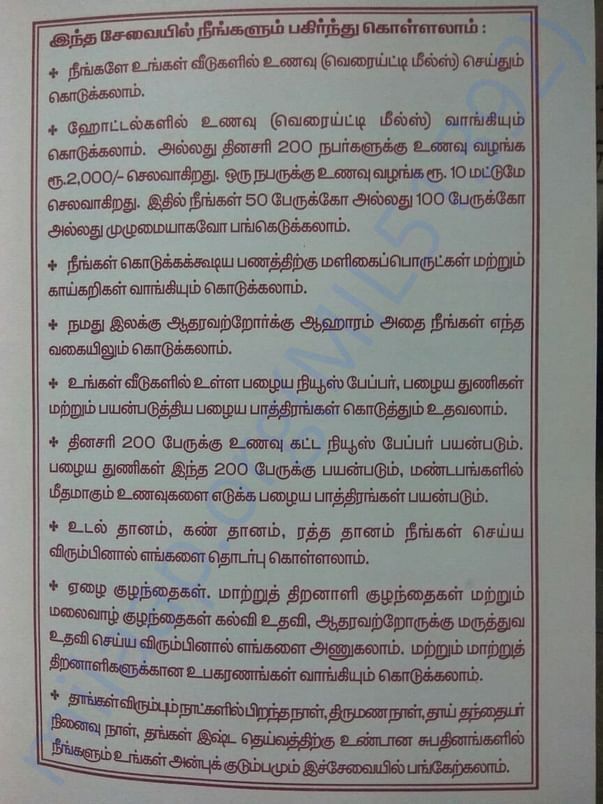 இந்த சேவையில் நீங்களும் பகிர்ந்து கொள்ளலாம் :
✦ நீங்களே உங்கள் வீடுகளில் உணவு (வெரைய்ட்டி மீல்ஸ்) செய்தும்
கொடுக்கலாம்.
✦ ஹோட்டல்களில் உணவு (வெரைய்ட்டி மீல்ஸ்) வாங்கியும்
கொடுக்கலாம். அல்லது தினசரி 200 நபர்களுக்கு உணவு வழங்க
ரூ.2,000/- செலவாகிறது. ஒரு நபருக்கு உணவு வழங்க ரூ. 10 மட்டுமே
செலவாகிறது. இதில் நீங்கள் 50 பேருக்கோ அல்லது 100 பேருக்கோ
அல்லது முழுமையாகவோ பங்கெடுக்கலாம்.
✦ நீங்கள் கொடுக்கக்கூடிய பணத்திற்கு மளிகைப்பொருட்கள் மற்றும்
காய்கறிகள் வாங்கியும் கொடுக்கலாம்.
✦ நமது இலக்கு ஆதரவற்றோர்க்கு ஆஹாரம் அதை நீங்கள் எந்த
வகையிலும் கொடுக்கலாம்.
✦ உங்கள் வீடுகளில் உள்ள பழைய நியூஸ் பேப்பர், பழைய துணிகள்
மற்றும் பயன்படுத்திய பழைய பாத்திரங்கள் கொடுத்தும் உதவலாம்.
✦ தினசரி 200 பேருக்கு உணவு கட்ட நியூஸ் பேப்பர் பயன்படும்.
பழைய துணிகள் இந்த 200 பேருக்கு பயன்படும், மண்டபங்களில்
மீதமாகும் உணவுகளை எடுக்க பழைய பாத்திரங்கள் பயன்படும்.
✦ உடல் தானம், கண் தானம், ரத்த தானம் நீங்கள் செய்ய
விரும்பினால் எங்களை தொடர்பு கொள்ளலாம்.
✦ ஏழை குழந்தைகள். மாற்றுத் திறனாளி குழந்தைகள் மற்றும்
மலைவாழ் குழந்தைகள் கல்வி உதவி, ஆதரவற்றோருக்கு மருத்துவ
உதவி செய்ய விரும்பினால் எங்களை அணுகலாம். மற்றும் மாற்றுத்
திறனாளிகளுக்கான உபகரணங்கள் வாங்கியும் கொடுக்கலாம்.
✦ தாங்கள் விரும்பும் நாட்களில் பிறந்த நாள், திருமண நாள், தாய் தந்தையர்
நினைவு நாள், தங்கள் இஷ்ட தெய்வத்திற்கு உண்டான சுபதினங்களில்
நீங்களும் உங்கள் அன்புக் குடும்பமும் இச்சேவையில் பங்கேற்கலாம்.
milaap.org(MIL51392)